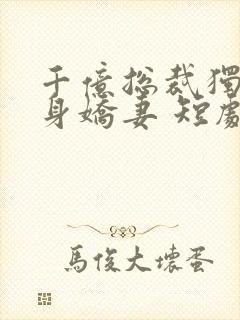 千億總裁獨
身嬌妻 短劇
馬俊大壞蛋